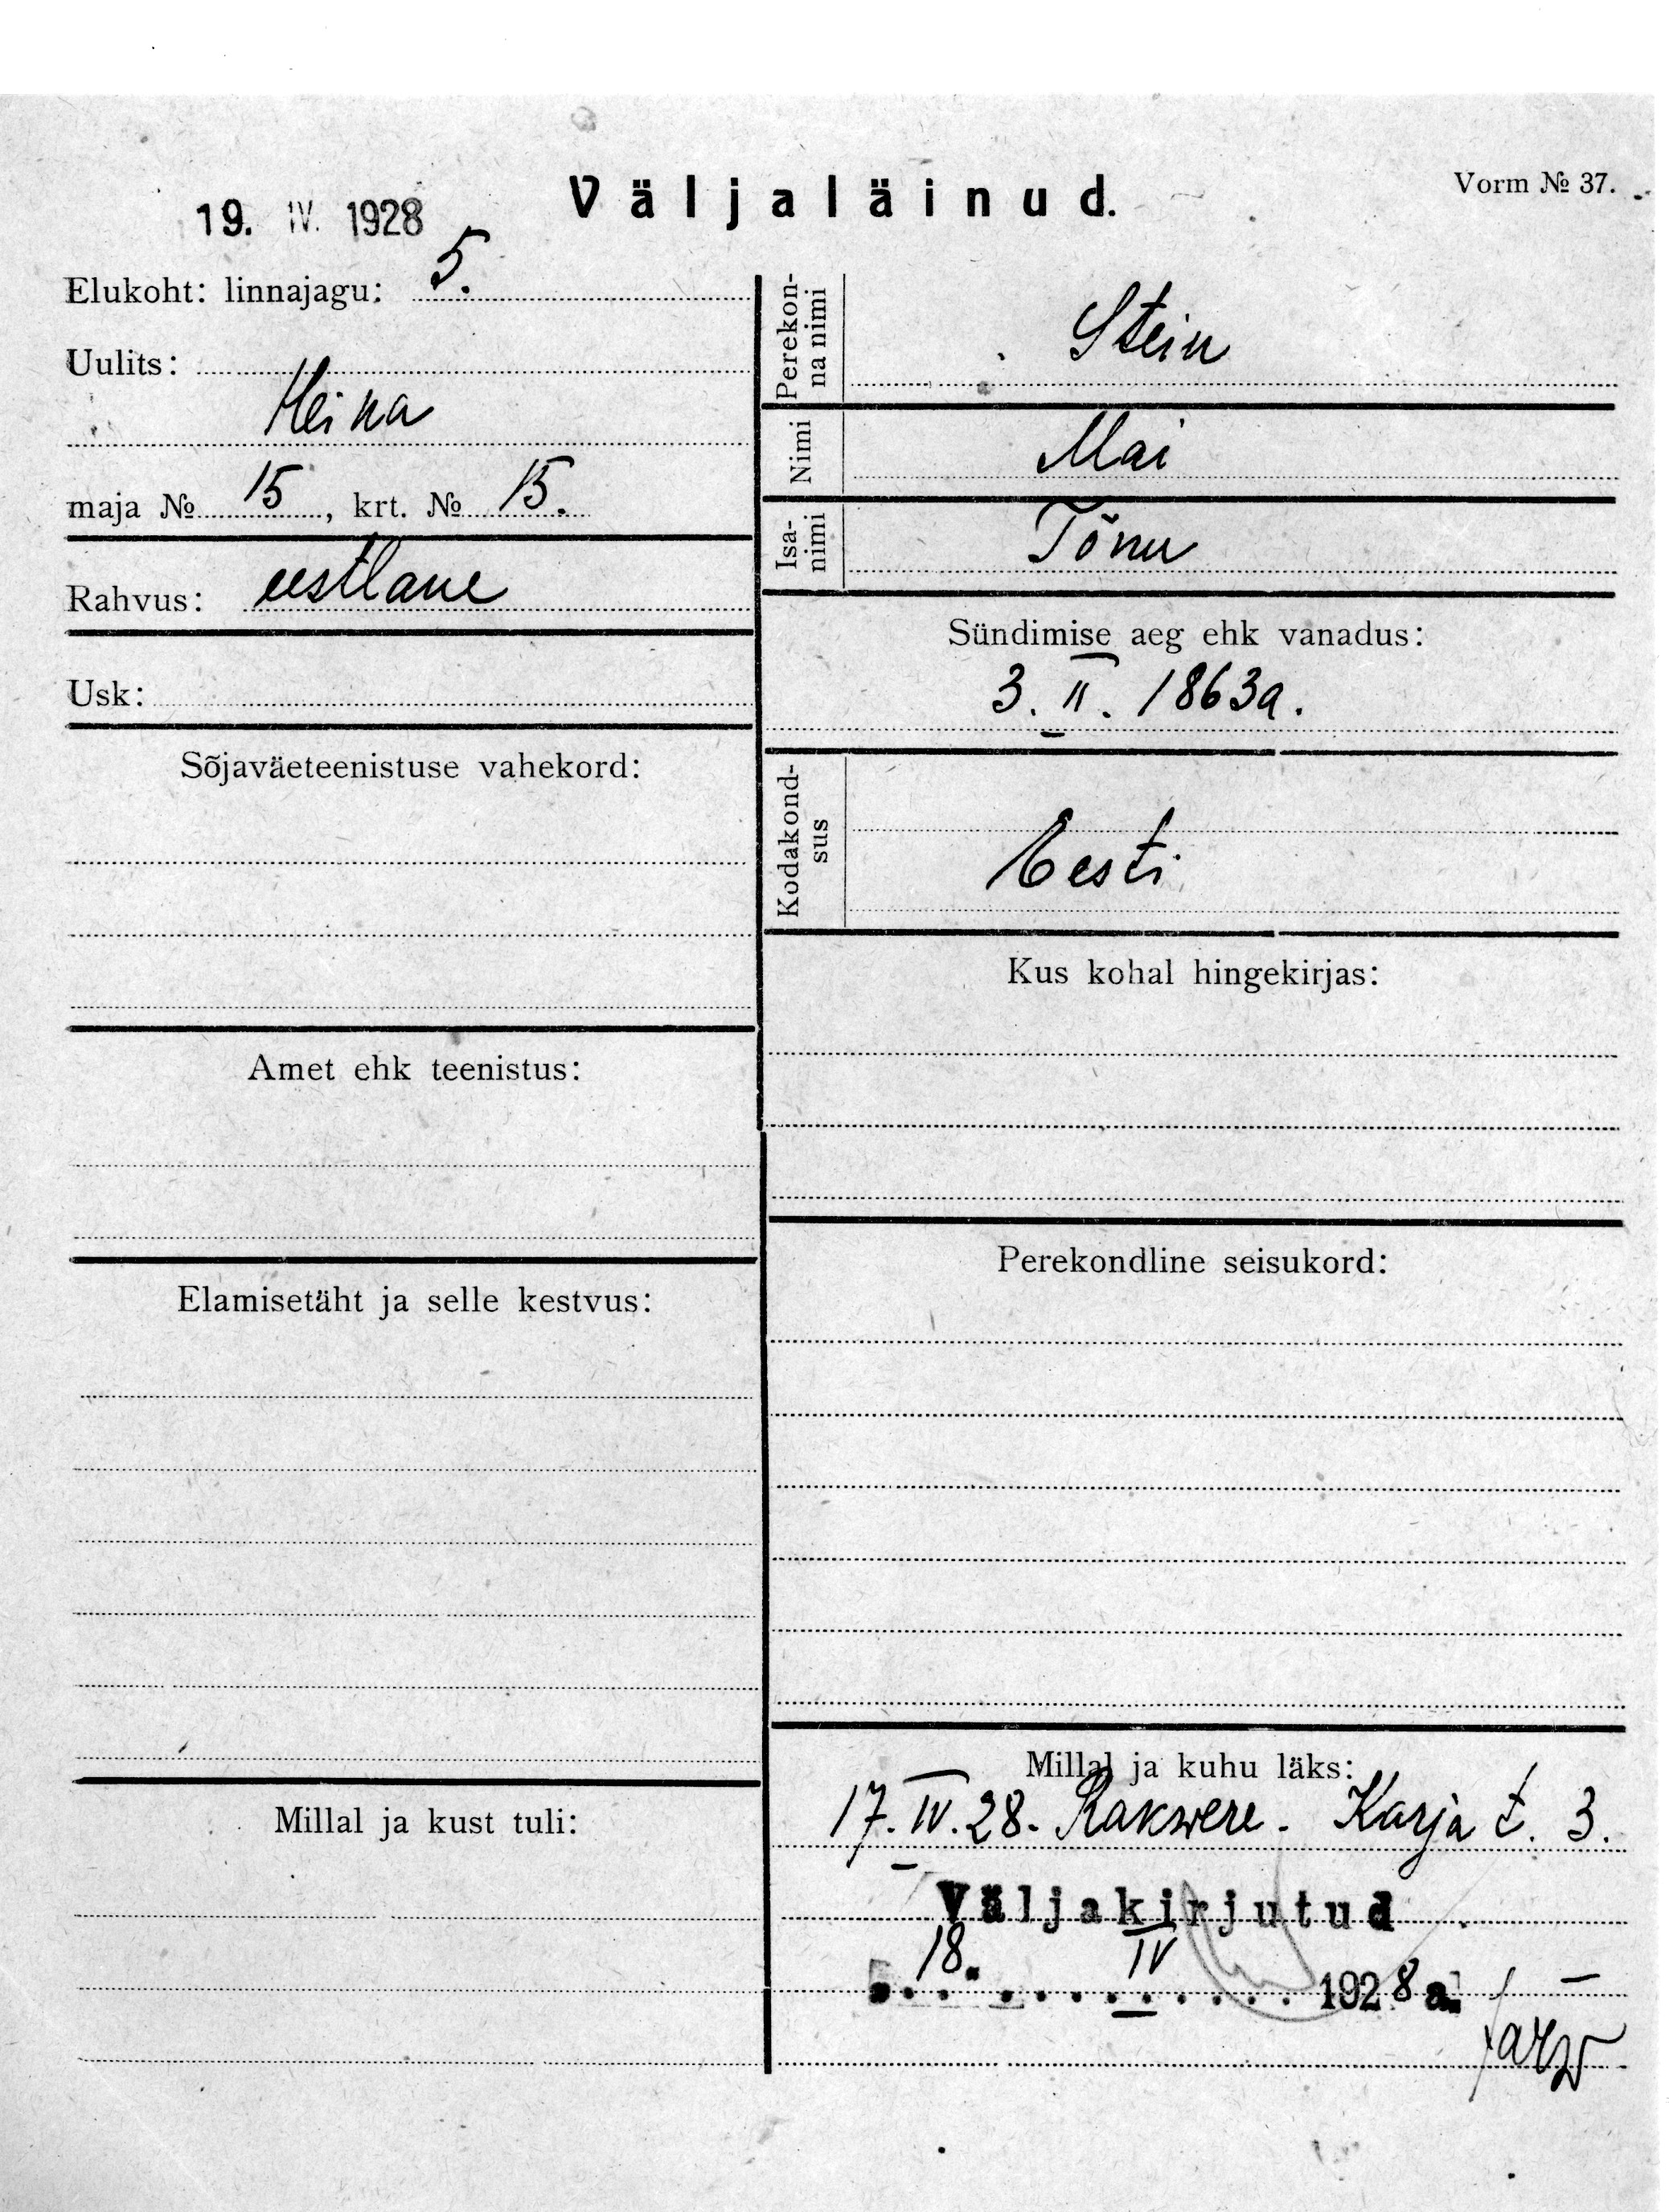 Vorm № 37.
Väljaläinud.
19. IV. 1928
Elukoht: linnajagu: 5.
Uulits:
Heina
maja № 15, krt. № 15.
Rahvus: eestlane
Usk:
Sõjaväeteenistuse vahekord:
Amet ehk teenistus:
Elamisetäht ja selle kestvus:
Millal ja kust tuli:
Perekonna nimi
Stein
Nimi
Mai
Isa-
nimi
Tõnu
Sündimise aeg ehk vanadus:
3. II. 1863a.
Kodakond-
sus
Eesti
Kus kohal hingekirjas:
Perekondline seisukord:
Millal ja kuhu läks:
17. IV. 28. Rakwere. Karja t. 3.
Väljakirjutud
18. IV 1928 a.